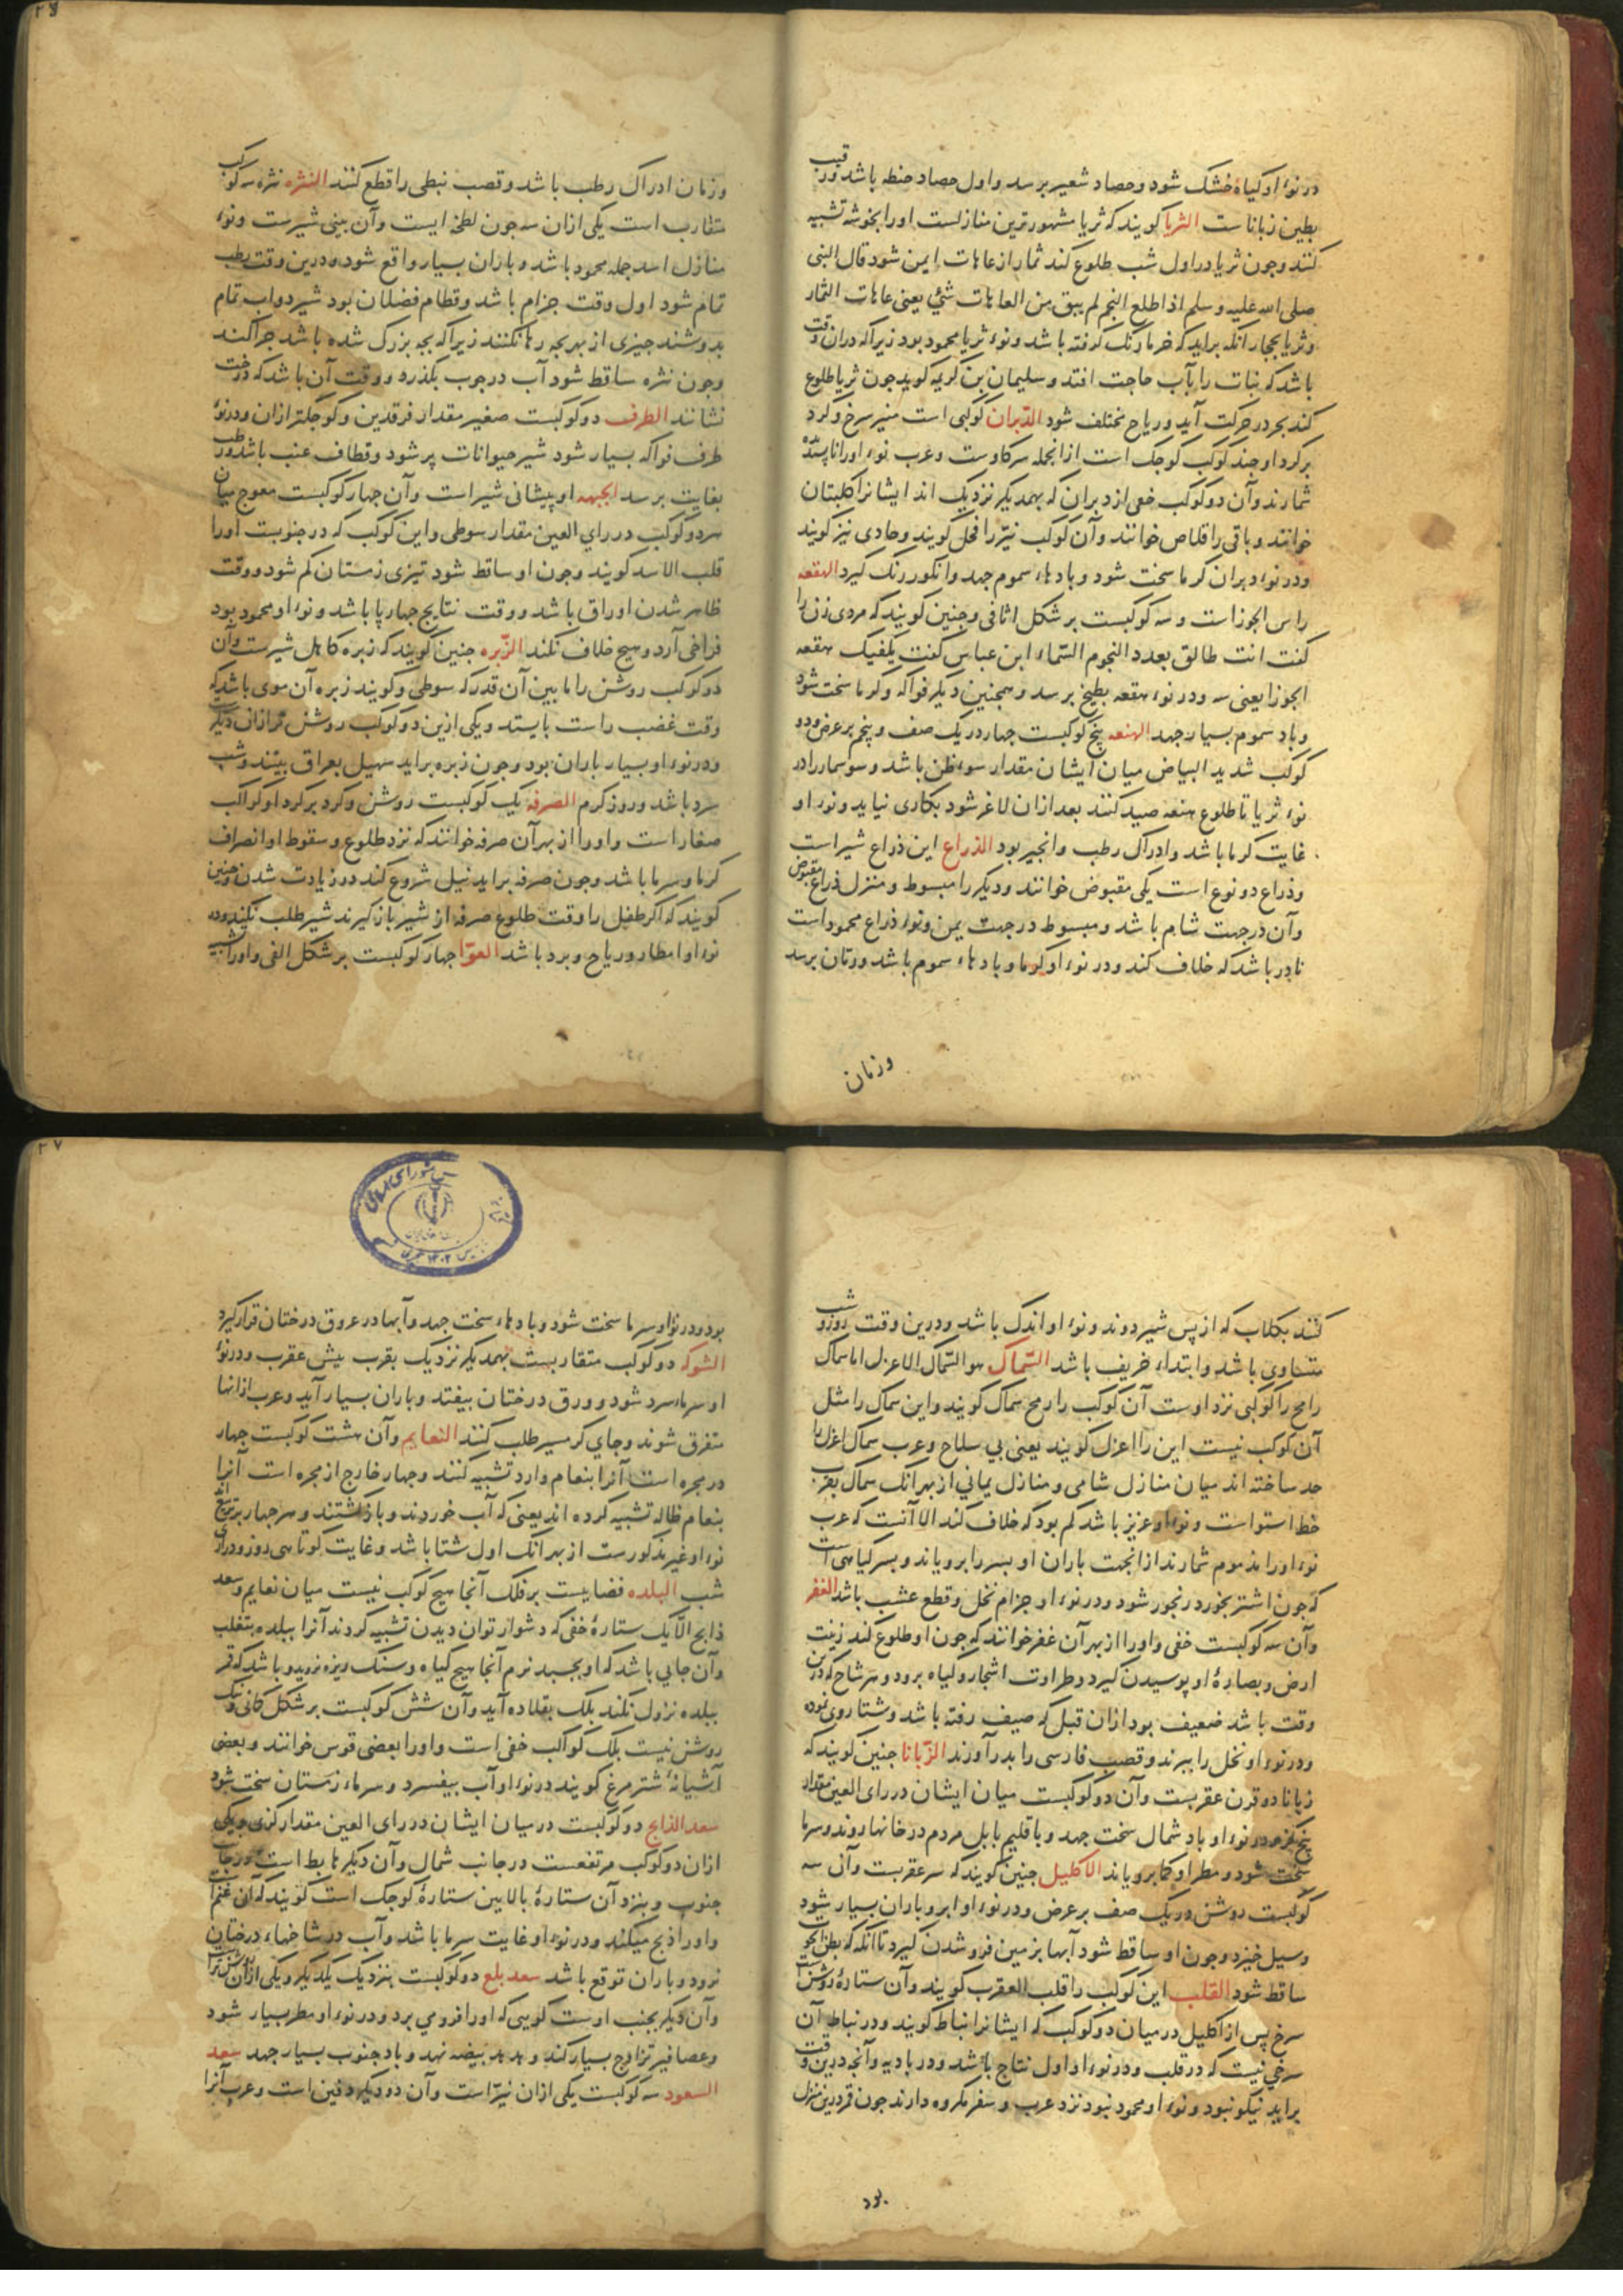 در نوء او کیاه خشک شود و حصاد شعیر برسد و اول حصاد حنطه باشد و رقیب
بطین زباناست الثریا کویند که ثریا مشهورترین منازلست اورا بخوشه تشبیه
کنند و جون ثریا در اول شب طلوع کند ثمار از عاهات ایمن شود قال النبی
صلی الله علیه وسلم اذا طلع النجم لم یبق من العاهات شئ یعنی عاهات الثمار
و ثریا بحجاز آنکه براید که خرما رنک کرفته باشد و نوء ثریا محمود بود زیرا که دران وقت
باشد که نبات را بآب حاجت افتد و سلیمان بن کریمه کوید جون ثریا طلوع
کند بحر در حرکت آید و ریاح مختلف شود الدبران کوکبی است منیر سرخ و کرد
بر کرد او جند کوکب کوجک است ازانجمله سرکاوست و عرب نوء اورا ناپسندیده
شمارند و آن دو کوکب خفی از دبران که بهمدیکر نزدیک اند ایشانرا کلبتان
خوانند و باقی را قلاص خوانند و آن کوکب نیّر را فحل کویند و حادی نیز کویند
و در نوء دبران کرما سخت شود و بادهاء سموم جهد و انکور رنک کیرد الهقعه
راس الجوزاست و سه کوکبست بر شکل اثافی و جنین کویند که مردی زن را
کفت انت طالق بعدد النجوم السماء ابن عباس کفت یکفیک هقعه
الجوزا یعنی سه و در نوء هقعه بطیخ برسد و همجنین دیکر فواکه و کرما سخت شود
و باد سموم بسیار جهد الهنعه پنج کوکبست جهار در یک صف و پنجم بر عرض و دو
کوکب شدید البیاض میان ایشان مقدار سوء ظن باشد و سوسمار را در
نوء ثریا تا طلوع هنعه صید کنند بعد ازان لاغر شود بکاری نیاید و نوء او
غایت کرما باشد و ادراک رطب و انجیر بود الذراع این ذراع شیر است
و ذراع دو نوع است یکی مقبوض خوانند و دیکر را مبسوط و منزل ذراع مقبوض
و آن در جهت شام باشد و مبسوط در جهت یمن و نوء ذراع محمود است
نادر باشد که خلاف کند و در نوء او کرما و بادهاء سموم باشد و رمان برسد
وزمان
۲۶
وزمان ادراک رطب باشد و قصب نبطی را قطع کنند النثره نثره سه کوکب
متقارب است یکی ازان سه جون لطخه ایست و آن بینی شیرست و نوء
منازل اسد جمله محمود باشد و باران بسیار واقع شود و درین وقت رطب
تمام شود اول وقت جزام باشد و فطام فصلان بود شیر دواب تمام
بدوشند جیزی از بهر بجه رها نکنند زیرا که بجه بزرک شده باشد جرا کند
و جون نثره ساقط شود آب در جوب بکذرد و وقت آن باشد که درخت
نشانند الطرف دو کوکبست صغیر مقدار فرقدین و کوجکتر ازان و در نوء
طرف فواکه بسیار شود شیر حیوانات پر شود و قطاف عنب باشد و رطب
بغایت برسد الجبهه او پیشانی شیر است و آن جهار کوکبست معوج میان
هر دو کوکب در رای العین مقدار سوطی و این کوکب که در جنوبست اورا
قلب الاسد کویند و جون او ساقط شود تیزی زمستان کم شود و وقت
ظاهر شدن اوراق باشد و وقت نتایج جهارپا باشد و نوء او محمود بود
فراخی آرد و هیج خلاف نکند الزبره جنین کویند که زبره کاهل شیرست و آن
دو کوکب روشن را مابین آن قدر که سوطی و کویند زبره آن موی باشد که
وقت غضب راست بایستد و یکی ازین دو کوکب روشن تر ازان دیکر
و در نوء او بسیار باران بود و جون زبره براید سهیل بعراق بینند و شب
سرد باشد و روز کرم الصرفه یک کوکبست روشن و کرد بر کرد او کواکب
صغار است و اورا از بهر آن صرفه خوانند که نزد طلوع و سقوط او انصراف
کرما و سرما باشد و جون صرفه براید نیل شروع کند در زیادت شدن و جنین
کویند که اکر طفل را وقت طلوع صرفه از شیر باز کیرند شیر طلب نکند و در
نوء او امطار و ریاح و برد باشد العوّا جهار کوکبست بر شکل الفی و اورا تشبیه
کنند بکلاب که از پس شیر دوند و نوء او اندک باشد و درین وقت روز و شب
متساوی باشد و ابتداء خریف باشد السّماک هو السّماک الاعزل اما سماک
رامح را کوکبی نزد اوست آن کوکب را رمح سماک کویند و این سماک را مثل
آن کوکب نیست این را اعزل کویند یعنی بی سلاح و عرب سماک اعزل را
حد ساخته اند میان منازل شامی و منازل یمانی از بهر انک سماک بقرب
خط استواست و نوء او عزیز باشد کم بود که خلاف کند الا آنست که عرب
نوء اورا مذموم شمارند ازانجهت باران او بسر را برویاند و بسر کیاهی است
که جون اشتر بخورد رنجور شود و در نوء او جزام نخل و قطع عشب باشد الغفر
و آن سه کوکبست خفی و اورا از بهر آن غفر خوانند که جون او طلوع کند زینت
ارض و بصارهٔ او پوسیدن کیرد و طراوت اشجار و کیاه برود و هر شاخ که درین
وقت باشد ضعیف بود ازان قبل که صیف رفته باشد و شتا روی نموده
و در نوء او نخل را ببرند و قصب فارسی را بدر آورند الزّبانا جنین کویند که
زبانا دو قرن عقربست و آن دو کوکبست میان ایشان در رای العین مقدار
پنج کز و در نوء او باد شمال سخت جهد و باقلیم بابل مردم در خانها روند و سرما
سخت شود و مطر او کما برویاند الاکلیل جنین کویند که سر عقربست و آن سه
کوکبست روشن و ریک صف بر عرض و در نوء او ابر و باران بسیار شود
و سیل خیزد و جون او ساقط شود آبها بزمین فرو شدن کیرد تا آنکه که بطن الحو
ساقط شود القلب این کوکب را قلب العقرب کویند و آن ستارهٔ روشن است
سرخ پس از اکلیل در میان دو کوکب که ایشانرا نباط کویند و در نباط آن
سرخی نیست که در قلب و در نوء او اول نتاج باشد و در بادیه و آنجه درین وقت
براید نیکو نبود و نوء او محمود نبود نزد عرب و سفر مکروه دارند جون قمر درین منزل
بود
۲۷
بود و در نوء او سرما سخت شود و بادهاء سخت جهد و آبها در عروق درختان قرار کیرد
الشوکه دو کوکب متقاربست بهمدیکر نزدیک بقرب نیش عقرب و در نوء
او سرما سرد شود و ورق درختان بیفتد و باران بسیار آید و عرب ازانها
متفرق شوند و جای کرمسیر طلب کنند النعایم و آن هشت کوکبست جهار
در مجره است آنرا بنعام وارد تشبیه کنند و جهار خارج از مجره است آنرا
بنعام ظاله تشبیه کرده اند یعنی که آب خوردند و باز کشتند و هر جهار بر تربیع اند
نوء او غیر مذکورست از بهر آنک اول شتا باشد و غایت کوتاهی روز و درازی
شب البلده فضاییست بر فلک آنجا هیج کوکب نیست میان نعایم و سعد
ذابح الّا یک ستارهٔ خفی که دشوار توان دیدن تشبیه کردند آنرا ببلده ثعلب
و آن جایی باشد که او بجسبد نرم آنجا هیج کیاه و سنک ریزه نروید و باشد که قمر
ببلده نزول نکند بلک بقلاده آید و آن شش کوکبست بر شکل کمانی و نیک
روشن نیست بلک کواکب خفی است و اورا بعضی قوس خوانند و بعضی
آشیانهٔ شتر مرغ کویند در نوء او آب بیفسرد و سرماء زمستان سخت شود
سعد الذابح دو کوکبست در میان ایشان در رای العین مقدار کزی و یکی
ازان دو کوکب مرتفعست در جانب شمال و آن دیکر هابط است در جانب
جنوب و بنزد آن ستارهٔ بالایین ستارهٔ کوجک است کویند که آن غنم است
و اورا ذبح میکند و در نوء او غایت سرما باشد و آب در شاخهاء درختان
نرود و باران توقع باشد سعد بلع دو کوکبست بنزدیک یکدیکر و یکی ازان روشن تر است
و آن دیکر بجنب اوست کویی که اورا فرو می برد و در نوء او مطر بسیار شود
و عصافیر تزاوج بسیار کند و هدهد بیضه نهد و باد جنوب بسیار جهد سعد
السعود سه کوکبست یکی ازان نیّر است و آن دو دیکر دفین است و عرب آنرا